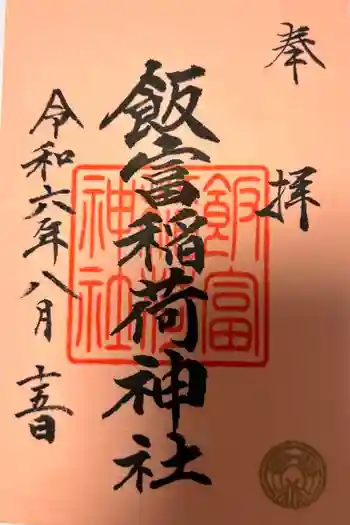 奉拝
飯富稲荷神社
飯富
稲荷
神社
令和六年八月十五日